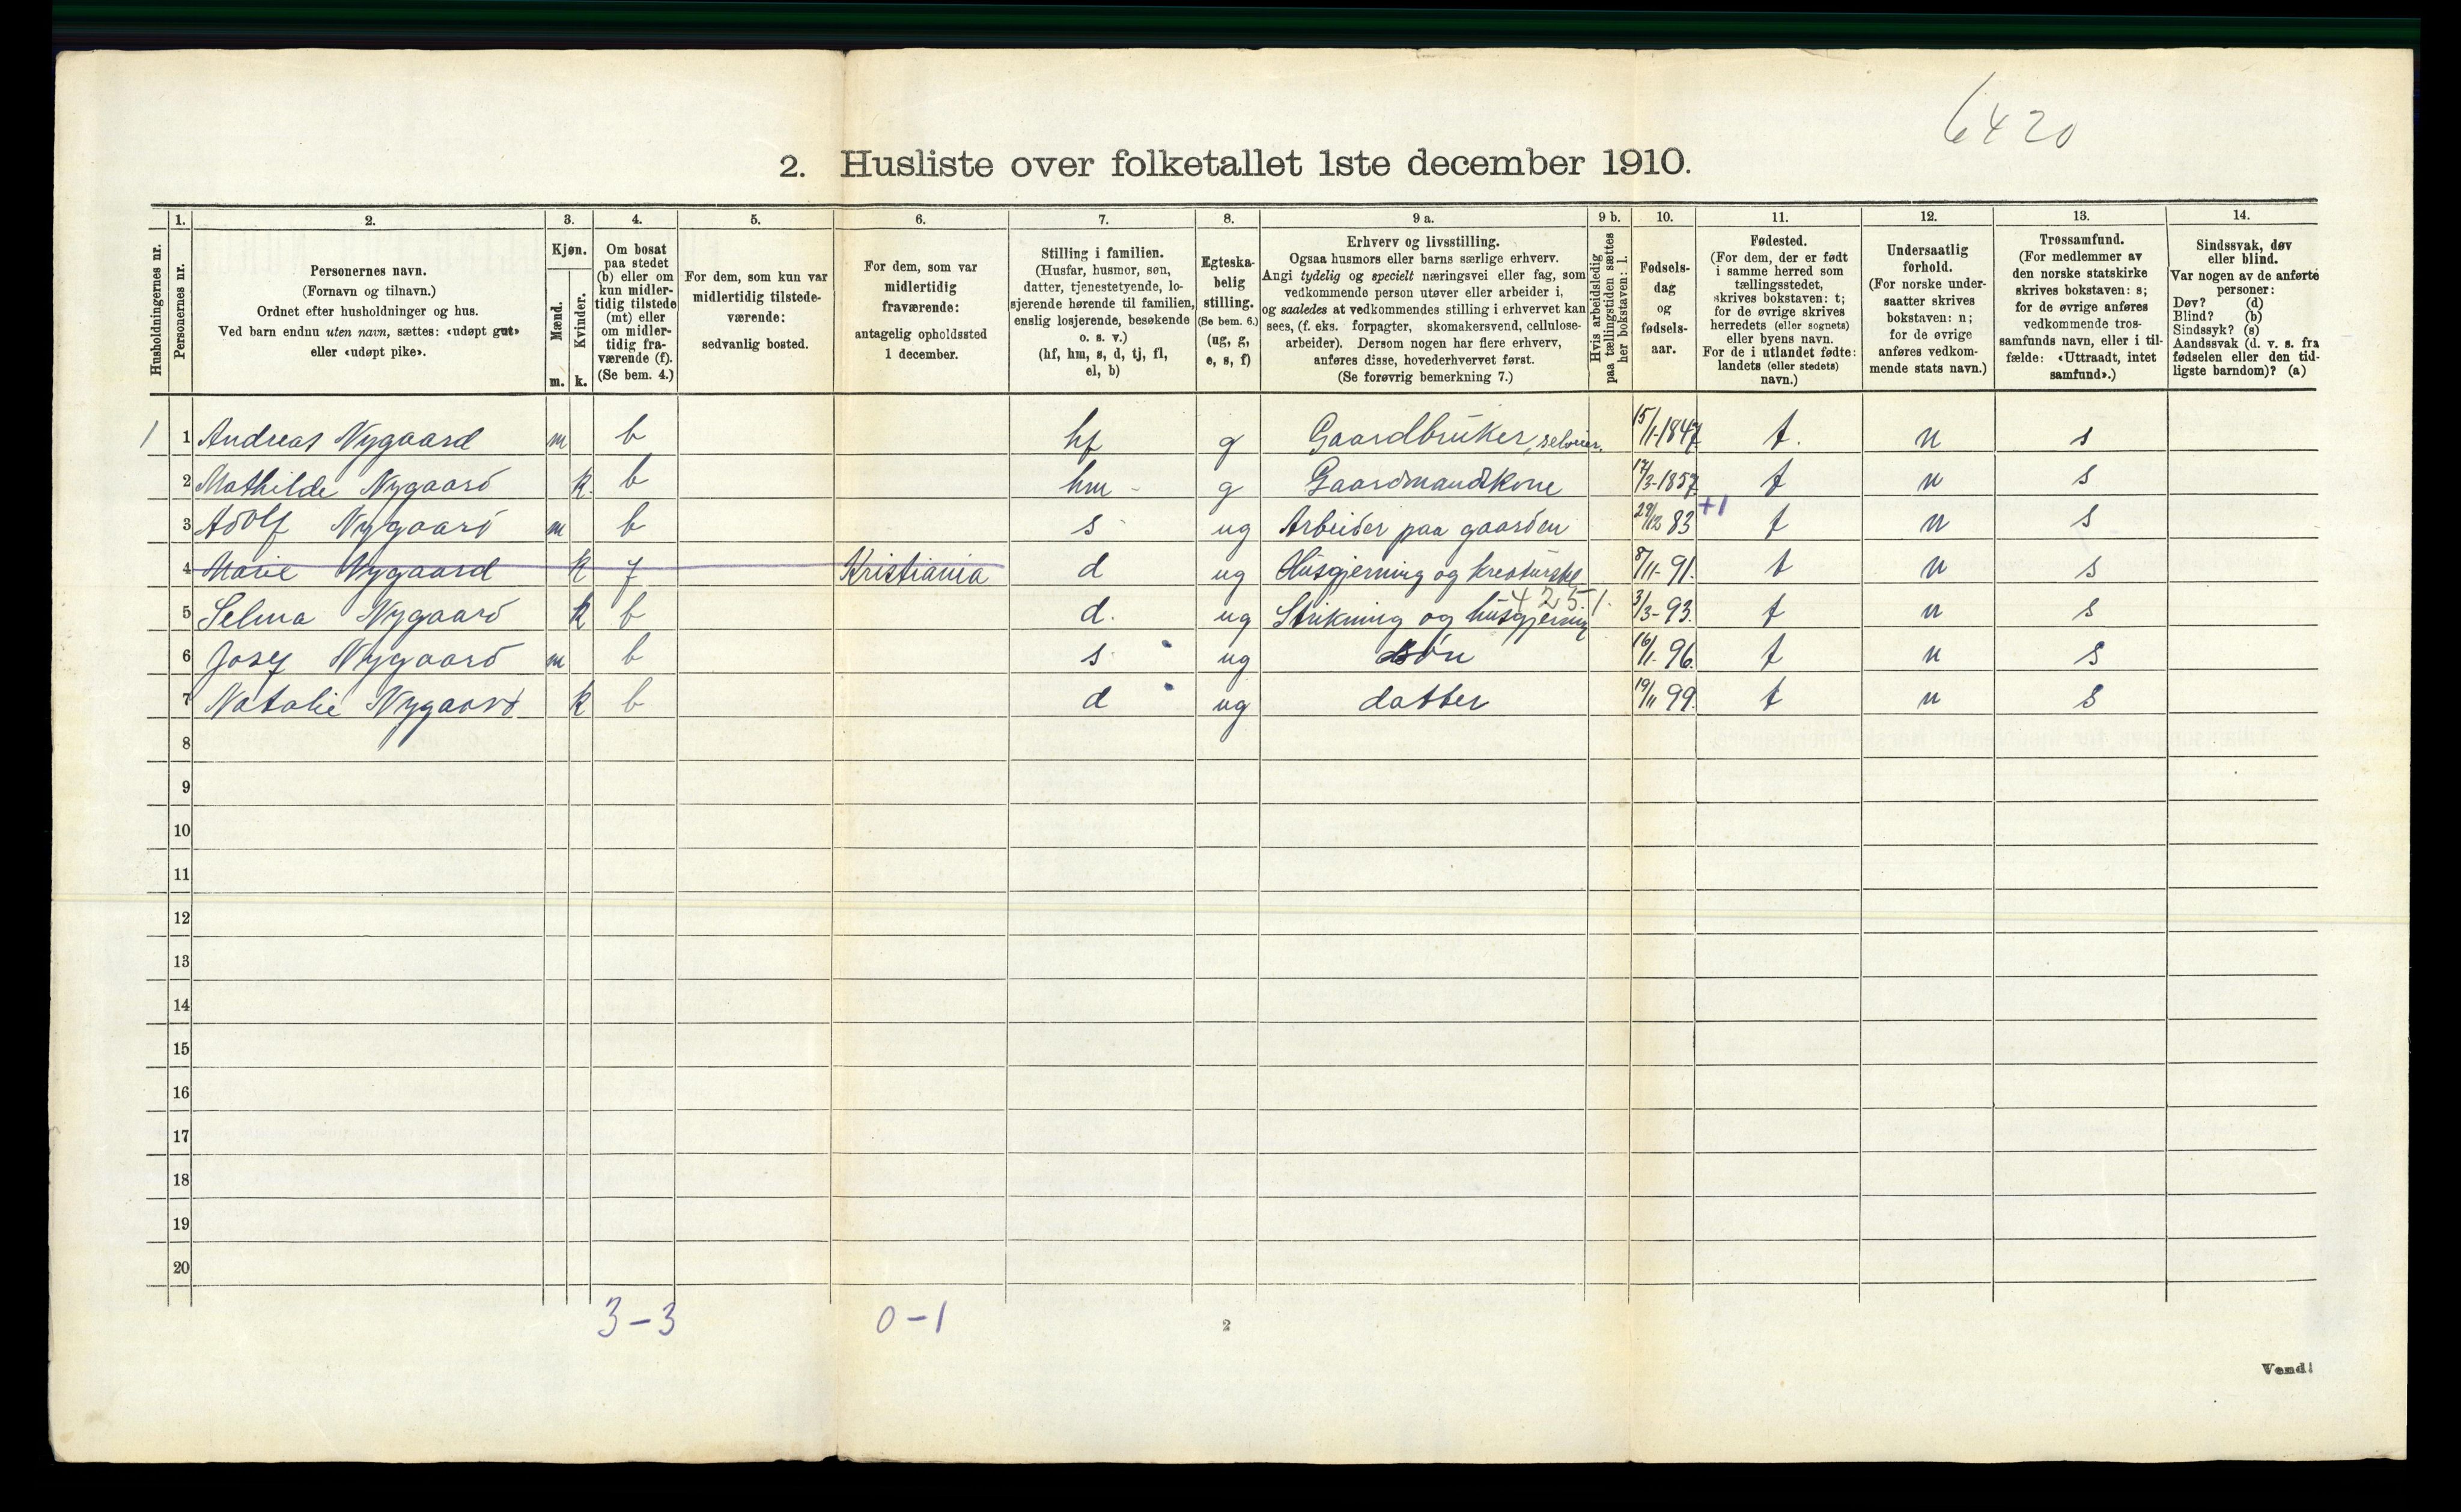 6420
2. Husliste over folketallet 1ste december 1910.
1. 2. 3. 4. 5. 6. 7. 8. 9 a. 9 b. 10. 11. 12. 13. 14.
Husholdningernes nr.
Personernes nr.
Personernes navn.
(Fornavn og tilnavn.)
Ordnet efter husholdninger og hus.
Ved barn endnu uten navn, sættes: «udøpt gut»
eller «udøpt pike».
Kjøn.
Mænd.
Kvinder.
m. k.
Om bosat
paa stedet
(b) eller om
kun midler-
tidig tilstede
(mt) eller
om midler-
tidig fra-
værende (f).
(Se bem. 4.)
For dem, som kun var
midlertidig tilstede-
værende:
sedvanlig bosted.
For dem, som var
midlertidig
fraværende:
antagelig opholdssted
1 december.
Stilling i familien.
(Husfar, husmor, søn,
datter, tjenestetyende, lo-
sjerende hørende til familien,
enslig losjerende, besøkende
o. s. v.)
(hf, hm, s, d, tj, fl,
el, b)
Egteska-
belig
stilling.
(Se bem. 6.)
(ug, g,
e, s, f)
Erhverv og livsstilling.
Ogsaa husmors eller barns særlige erhverv.
Angi tydelig og specielt næringsvei eller fag, som
vedkommende person utøver eller arbeider i,
og saaledes at vedkommendes stilling i erhvervet kan
sees, (f. eks. forpagter, skomakersvend, cellulose-
arbeider). Dersom nogen har flere erhverv,
anføres disse, hovederhvervet først.
(Se forøvrig bemerkning 7.)
Hvis arbeidsledig
paa tællingstiden sættes
her bokstaven: l.
Fødsels-
dag
og
fødsels-
aar.
Fødested.
(For dem, der er født
i samme herred som
tællingsstedet,
skrives bokstaven: t;
for de øvrige skrives
herredets (eller sognets)
eller byens navn.
For de i utlandet fødte:
landets (eller stedets)
navn.)
Undersaatlig
forhold.
(For norske under-
saatter skrives
bokstaven: n;
for de øvrige
anføres vedkom-
mende stats navn.)
Trossamfund.
(For medlemmer av
den norske statskirke
skrives bokstaven: s;
for de øvrige anføres
vedkommende tros-
samfunds navn, eller i til-
fælde: «Uttraadt, intet
samfund».)
Sindssvak, døv
eller blind.
Var nogen av de anførte
personer:
Døv? (d)
Blind? (b)
Sindssyk? (s)
Aandssvak (d. v. s. fra
fødselen eller den tid-
ligste barndom)? (a)
1 1 Andreas Nygaard m b hf g Gaardbruker, selveier. 15/1-1847 t. n s
2 Mathilde Nygaard k. b hm - g Gaardmandskone 17/3-1857 t n s
3 Adolf Nygaard m b s ug Arbeider paa gaarden 29/12 83 +1 t n s
4 Marie Nygaard k f Kristiania d ug Husgjerning og kreaturstel 8/11-91. t n s
5 Selma Nygaard k b d. ug Strikning og husgjerning 425.1. 3/3-93. t n s
6 Josef Nygaard m b s ug søn 16/1-96. t n s
7 Natalie Nygaard k b d ug datter 19/11 99. t n s
8
9
10
11
12
13
14
15
16
17
18
19
20
3-3 0-1
2
Vend!